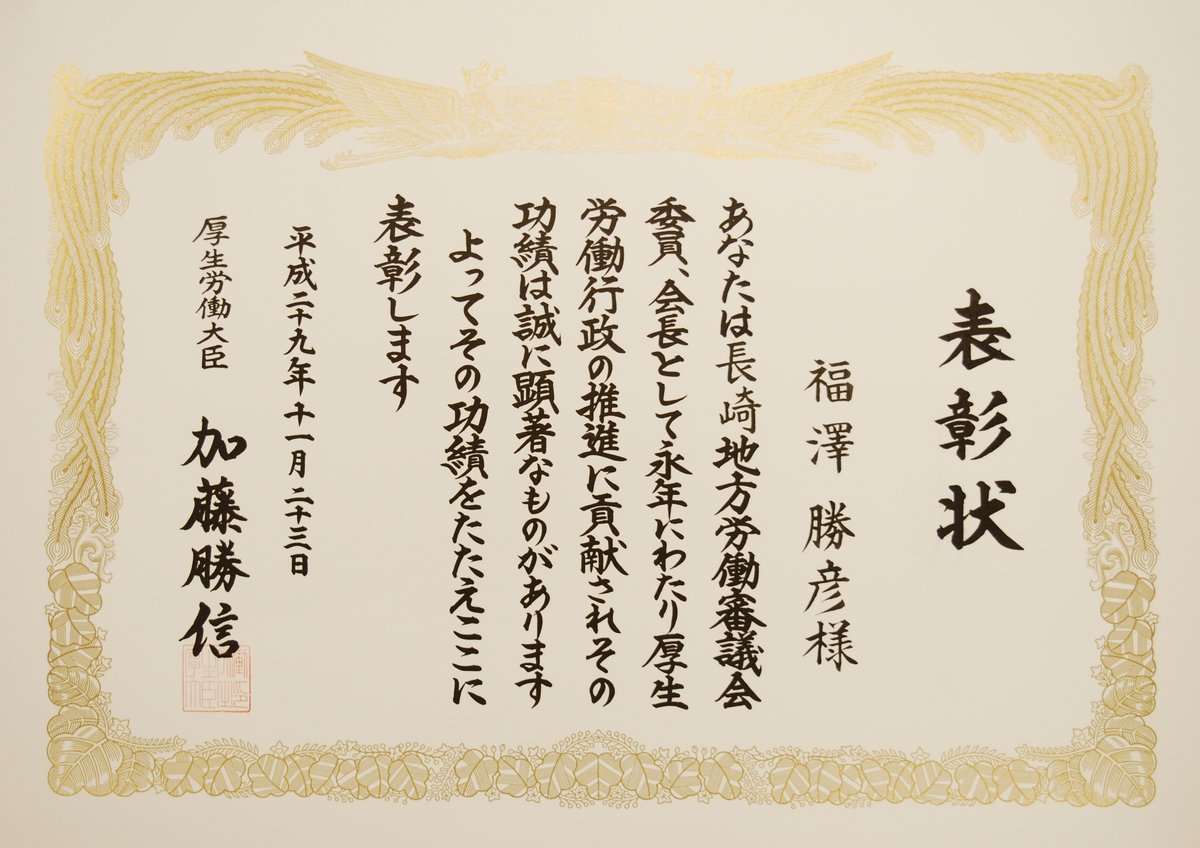 表彰状
福澤勝彦様
あなたは長崎地方労働審議会
委員、会長として永年にわたり厚生
労働行政の推進に貢献されその
功績は誠に顕著なものがあります
よってその功績をたたえここに
表彰します
平成二十九年十一月二十三日
厚生労働大臣 加藤勝信